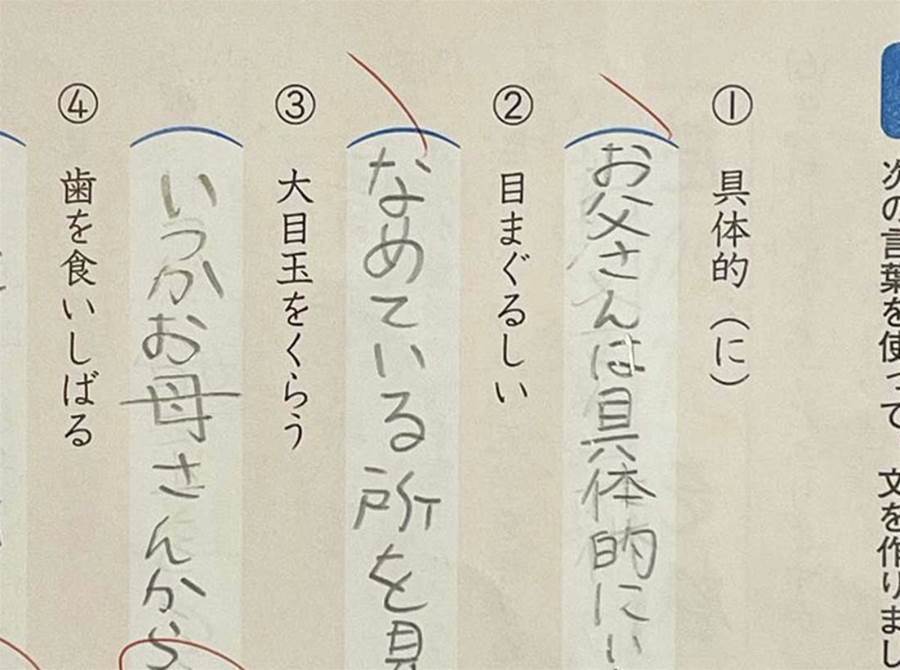 次の言葉を使って 文を作りまし
① 具体的(に)
お父さんは具体的にい
② 目まぐるしい
なめている所を見
③ 大目玉をくらう
いつかお母さんから
④ 歯を食いしばる